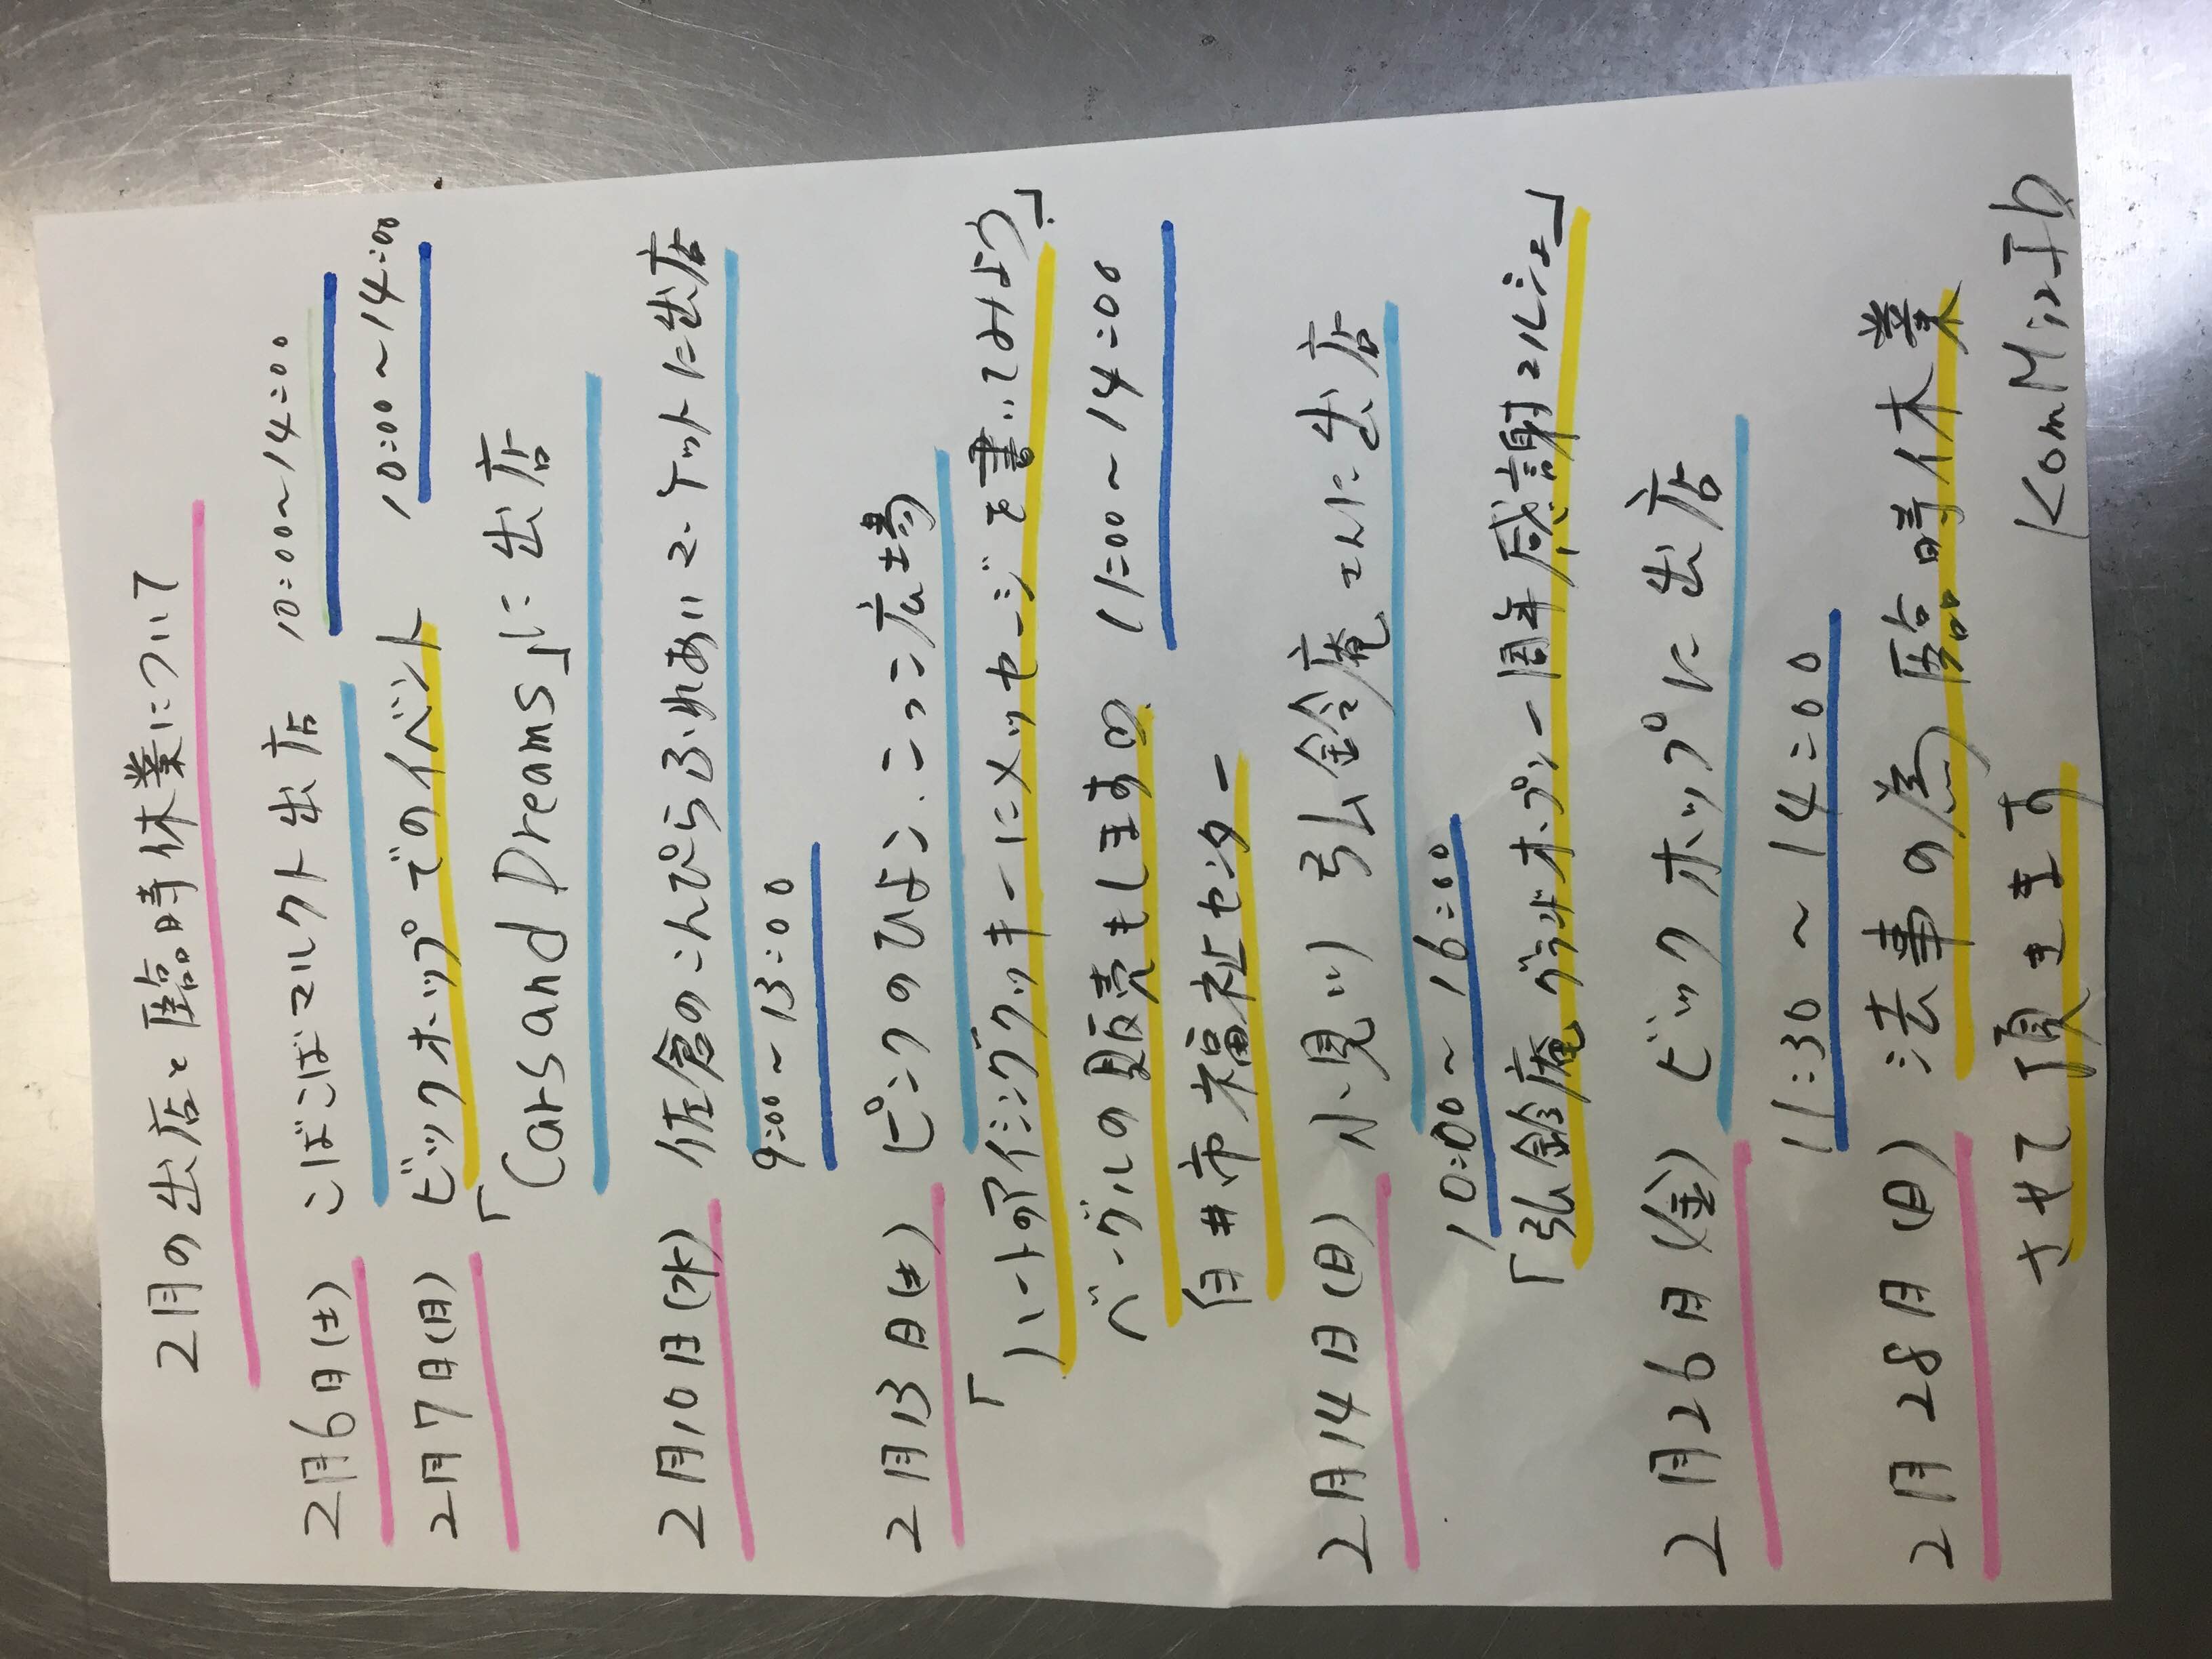 2月の出店と臨時休業について
2月6日(土) こばこばマルクト出店 10:00〜14:00
2月7日(日) ビックホップでのイベント 10:00〜14:00
「Cars and Dreams」に出店
2月10日(水) 佐倉のこんぴらふれあいマーケットに出店
9:00〜13:00
2月13日(土) ピンクのひよこ、こっこ広場
「ハートのアイシングクッキーにメッセージを書いてみよう」
ベーグルの販売もします 11:00〜14:00
白井市福祉センター
2月14日(日) 小見川 弘鈴庵さんに出店
10:00〜16:00
「弘鈴庵グランドオープン一周年感謝マルシェ」
2月26日(金) ビックホップに出店
11:30〜14:00
2月28日(日) 法事の為臨時休業
させて頂きます KomMisIb